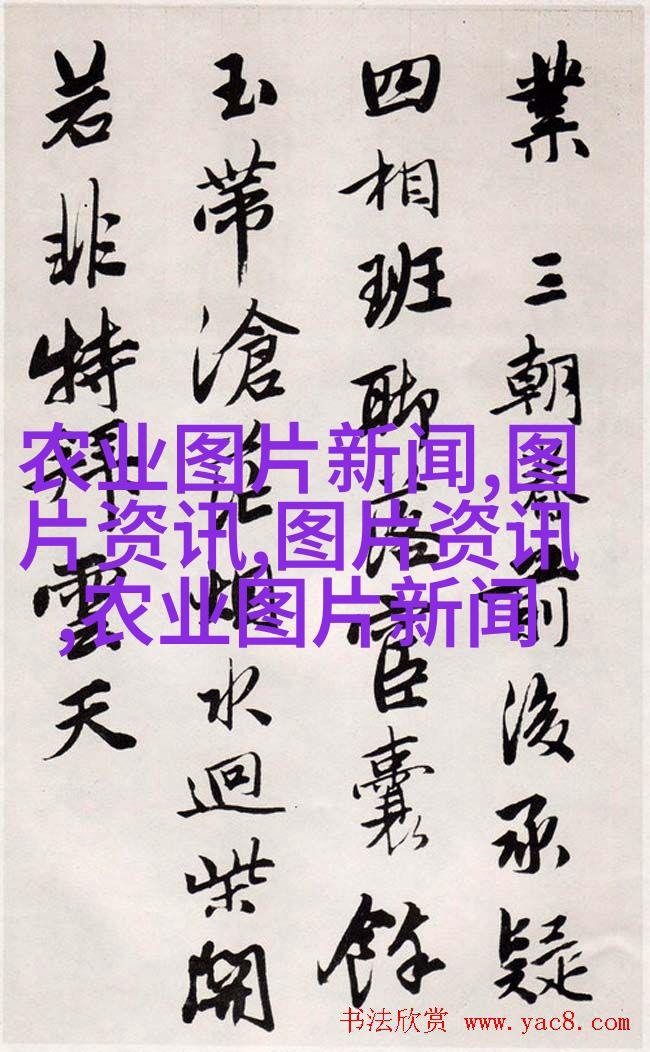 業 三朝前後承疑
四相班聯落臣囊餘
玉帶滄烟水迴柴開
若非特拜雲天
农业图片新闻,图
片资讯,图片资讯
,农业图片新闻
书法欣赏 www.yac8.com